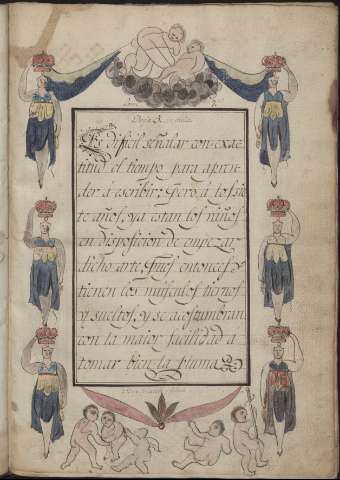 Es dificil señalar con exac-
titud el tiempo para apren-
der a escribir; Pero, á los sie-
te años, ya estan los niños
en disposicion de empezar
dicho arte, Pues entonces, y
tienen los musculos tiernos
y sueltos, y se acostumbran
con la maior facilidad a
tomar bien la pluma